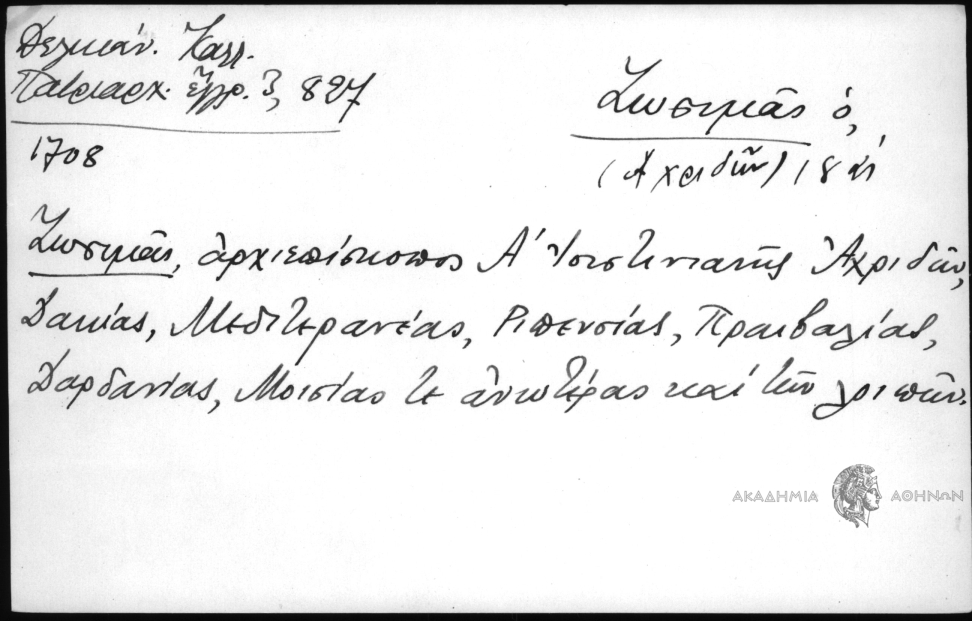 Δελικάν. Καλλ.
Πατριαρχ. ἔγγρ. 3, 827
1708
Ζωσιμᾶς ὁ,
(Ἀχριδῶν) 18 αἰ
Ζωσιμᾶς, ἀρχιεπίσκοπος Α' Ἰουστινιανῆς Ἀχριδῶν,
Δακίας, Μεδιτερανέας, Ριπενσίας, Πραιβαλίας,
Δαρδανίας, Μοισίας τε ἀνωτέρας καί τῶν λοιπῶν.
ΑΚΑΔΗΜΙΑ ΑΘΗΝΩΝ